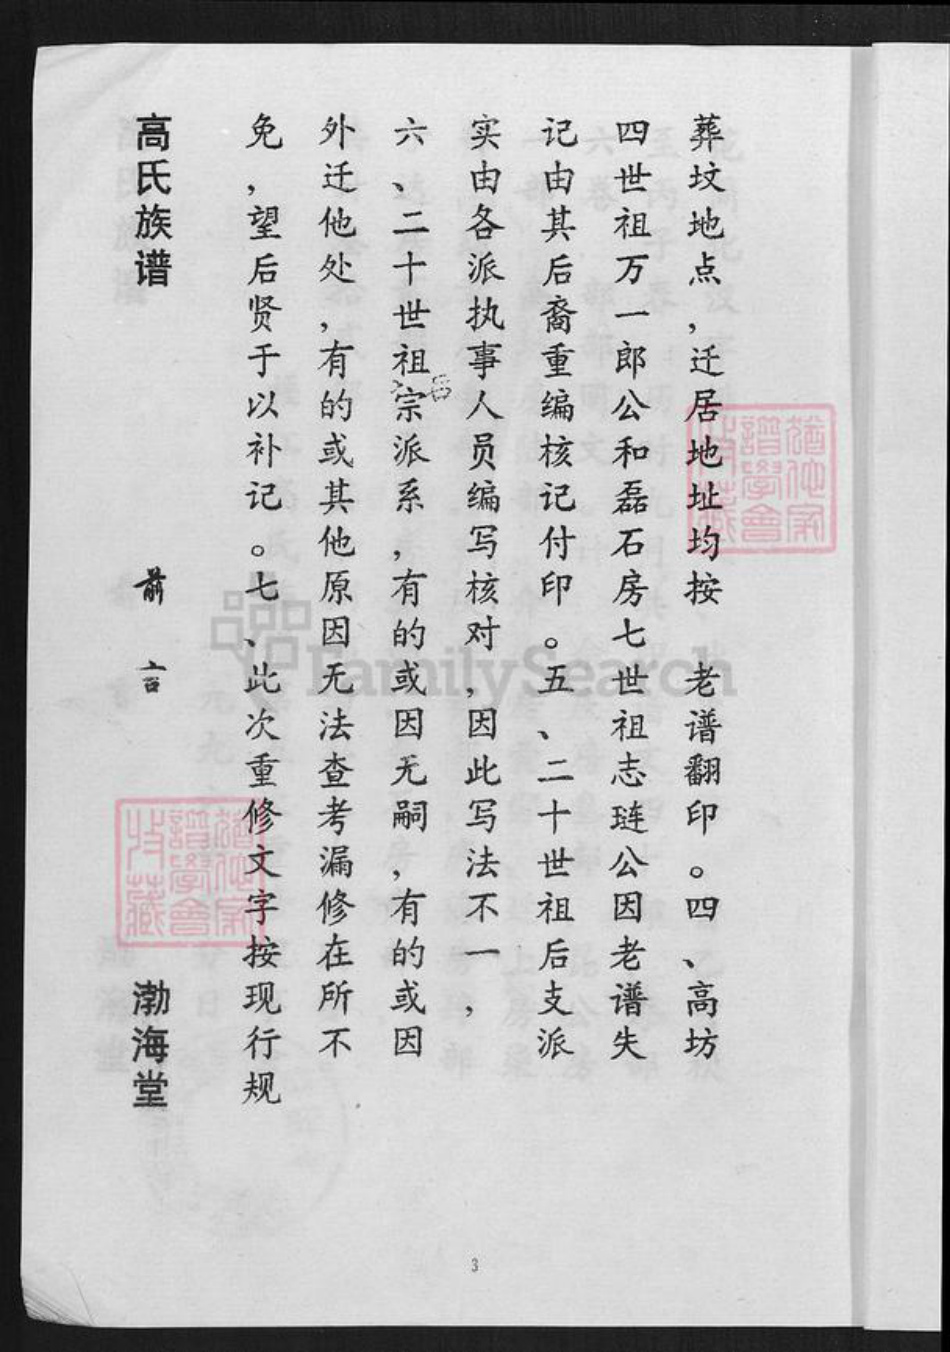 葬坟地点，迁居地址均按　老谱翻印。四、高坊
四世祖万一郎公和磊石房七世祖志琏公因老谱失
记由其后裔重编核记付印。五、二十世祖后支派
实由各派执事人员编写核对，因此写法不一，
六、二十世祖宗派系，有的或因无嗣，有的或因
后
外迁他处，有的或其他原因无法查考漏修在所不
免，望后贤于以补记。七、此次重修文字按现行规
高氏族谱　前言　渤海堂
譜學會
收藏
譜學會
收藏
FamilySearch
3